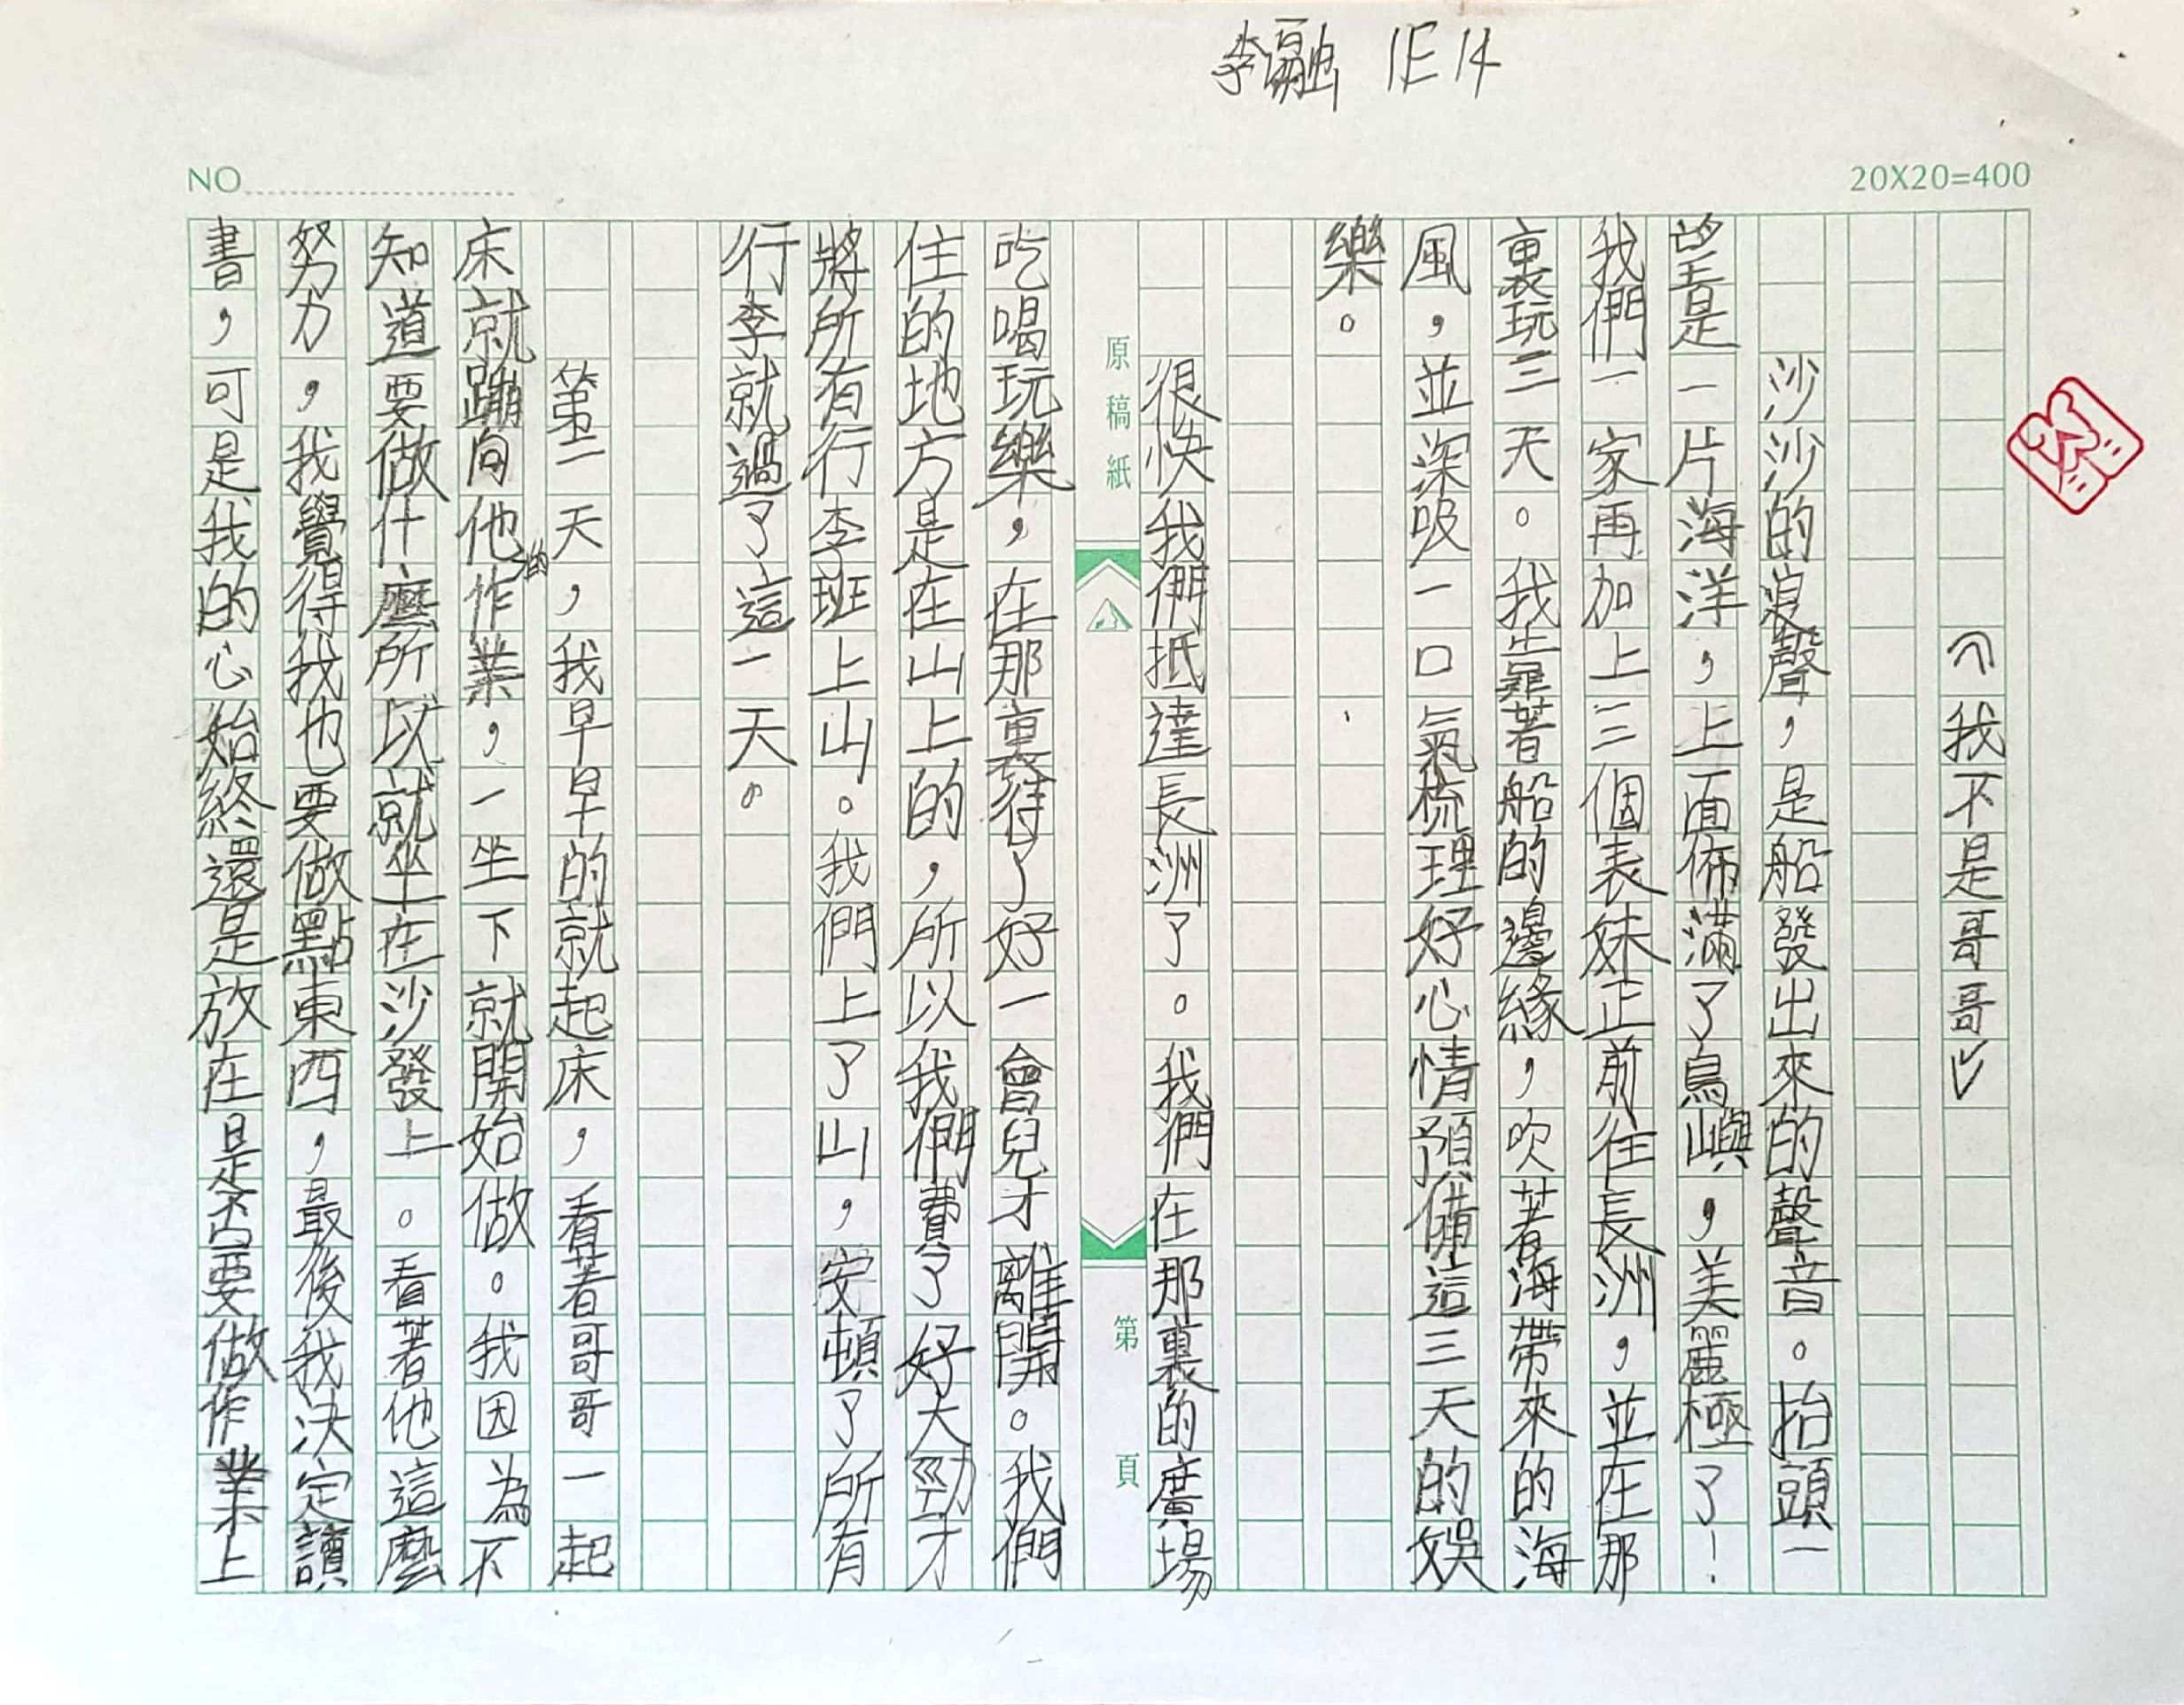 李融 1E14
NO
20X20=400
〈我不是哥哥〉
沙沙的浪聲，是船發出來的聲音。抬頭一
望是一片海洋，上面佈滿了島嶼，美麗極了！
我們一家再加上三個表妹正前往長洲，並在那
裏玩三天。我靠著船的邊緣，吹著海帶來的海
風，並深吸一口氣梳理好心情預備這三天的娛
樂。
很快我們抵達長洲了。我們在那裏的廣場
原稿紙
第 頁
吃喝玩樂，在那裏待了好一會兒才離開。我們
住的地方是在山上的，所以我們費了好大勁才
將所有行李班上山。我們上了山，安頓了所有
行李就過了這一天。
第二天，我早早的就起床，看著哥哥一起
床就蹦向他的作業，一坐下就開始做。我因為不
知道要做什麼所以就坐在沙發上。看著他這麼
努力，我覺得我也要做點東西，最後我決定讀
書，可是我的心始終還是放在是否要做作業上